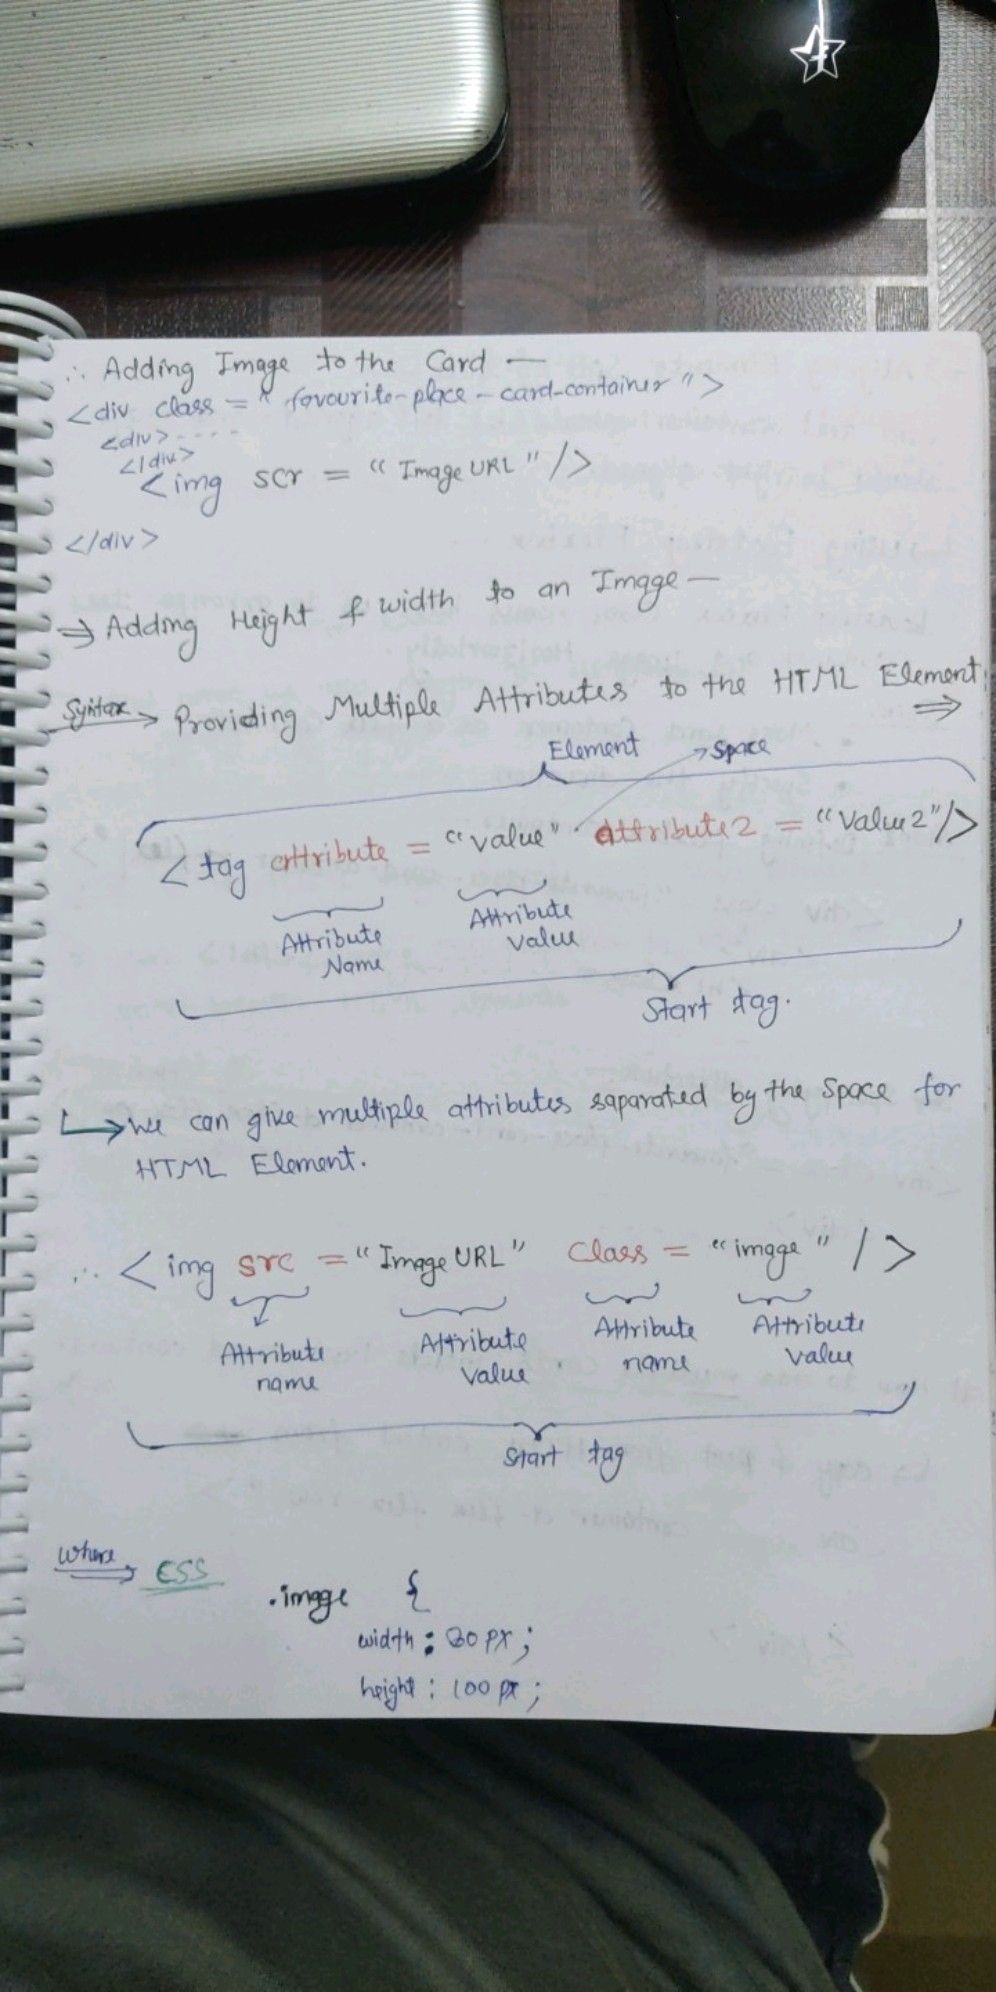 ∴ Adding Image to the Card —
<div class = "favourite-place-card-container">
<div>----
</div>
<img scr = "Image URL"/>
</div>
⇒ Adding Height & width to an Image —
Syntax → Providing Multiple Attributes to the HTML Element ⇒
Element → Space
<tag attribute = "value" attribute2 = "value2"/>
Attribute Attribute
Name Value
Start tag.
↳ We can give multiple attributes saparated by the Space for
HTML Element.
∴ <img src = "Image URL" Class = "image" />
Attribute Attribute Attribute Attribute
name value name value
Start tag
where ⇒ CSS
.image {
width : 80px;
height : 100px;